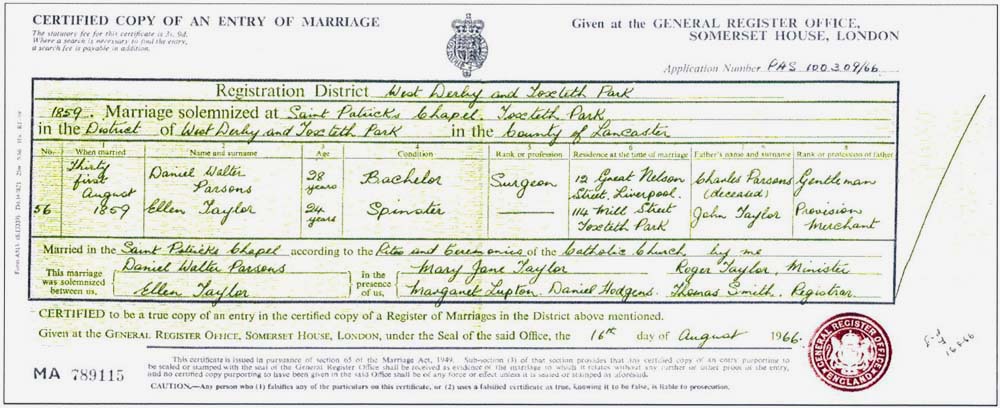 CERTIFIED COPY OF AN ENTRY OF MARRIAGE
Given at the GENERAL REGISTER OFFICE,
SOMERSET HOUSE, LONDON
The statutory fee for this certificate is 3s. 9d.
Where a search is necessary to find the entry,
a search fee is payable in addition.
Application Number PAS 100309/66
Registration District West Derby and Toxteth Park
1859. Marriage solemnized at Saint Patricks Chapel. Toxteth Park
in the District of West Derby and Toxteth Park in the County of Lancaster
No. When married Name and surname Age Condition Rank or profession Residence at the time of marriage Father's name and surname Rank or profession of father
56 Thirty first August 1859
Daniel Walter Parsons 28 years Bachelor Surgeon 12 Great Nelson Street. Liverpool. Charles Parsons (deceased) Gentleman
Ellen Taylor 24 years Spinster 114 Mill Street Toxteth Park John Taylor Provision Merchant
Married in the Saint Patricks Chapel according to the Rites and Ceremonies of the Catholic Church by me
This marriage was solemnized between us,
Daniel Walter Parsons
Ellen Taylor
in the presence of us,
Mary Jane Taylor Roger Taylor, Minister
Margaret Lupton. Daniel Hodgens. Thomas Smith. Registrar
CERTIFIED to be a true copy of an entry in the certified copy of a Register of Marriages in the District above mentioned.
Given at the GENERAL REGISTER OFFICE, SOMERSET HOUSE, LONDON, under the Seal of the said Office, the 16th day of August 1966.
MA 789115
This certificate is issued in pursuance of section 65 of the Marriage Act, 1949. Sub-section (3) of that section provides that any certified copy of an entry purporting to
be sealed or stamped with the seal of the General Register Office shall be received as evidence of the marriage to which it relates without any further or other proof of the entry,
and no certified copy purporting to have been given in the said Office shall be of any force or effect unless it is sealed or stamped as aforesaid.
CAUTION.—Any person who (1) falsifies any of the particulars on this certificate, or (2) uses a falsified certificate as true, knowing it to be false, is liable to prosecution.
GENERAL REGISTER OFFICE
ENGLAND